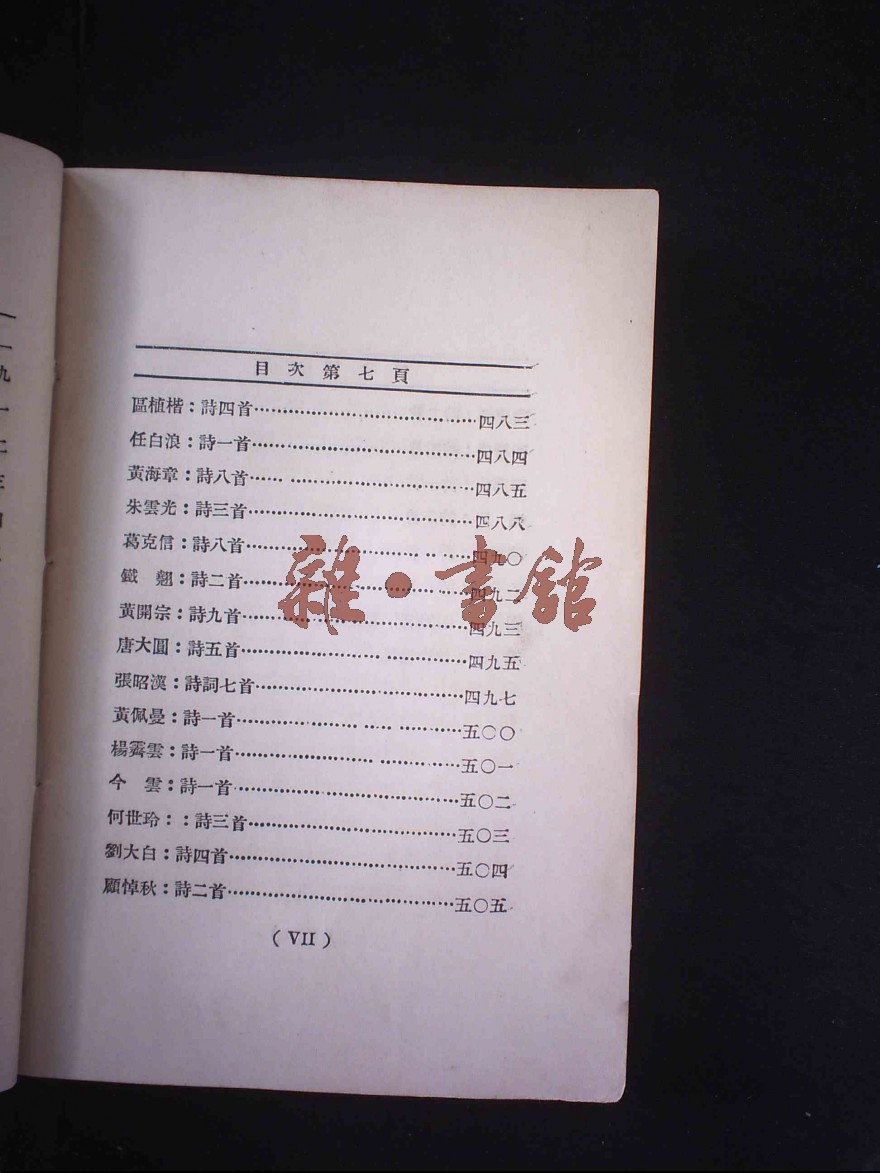 目次第七頁
區植楷：詩四首……四八三
任白浪：詩一首……四八四
黃海章：詩八首……四八五
朱雲光：詩三首……四八八
葛克信：詩八首……四九〇
鐵　翹：詩二首……四九二
黃開宗：詩九首……四九三
唐大圓：詩五首……四九五
張昭漢：詩詞七首……四九七
黃佩曼：詩一首……五〇〇
楊霽雲：詩一首……五〇一
今　雲：詩一首……五〇二
何世玲：：詩三首……五〇三
劉大白：詩四首……五〇四
顧悼秋：詩二首……五〇五
（VII）
雜·書館